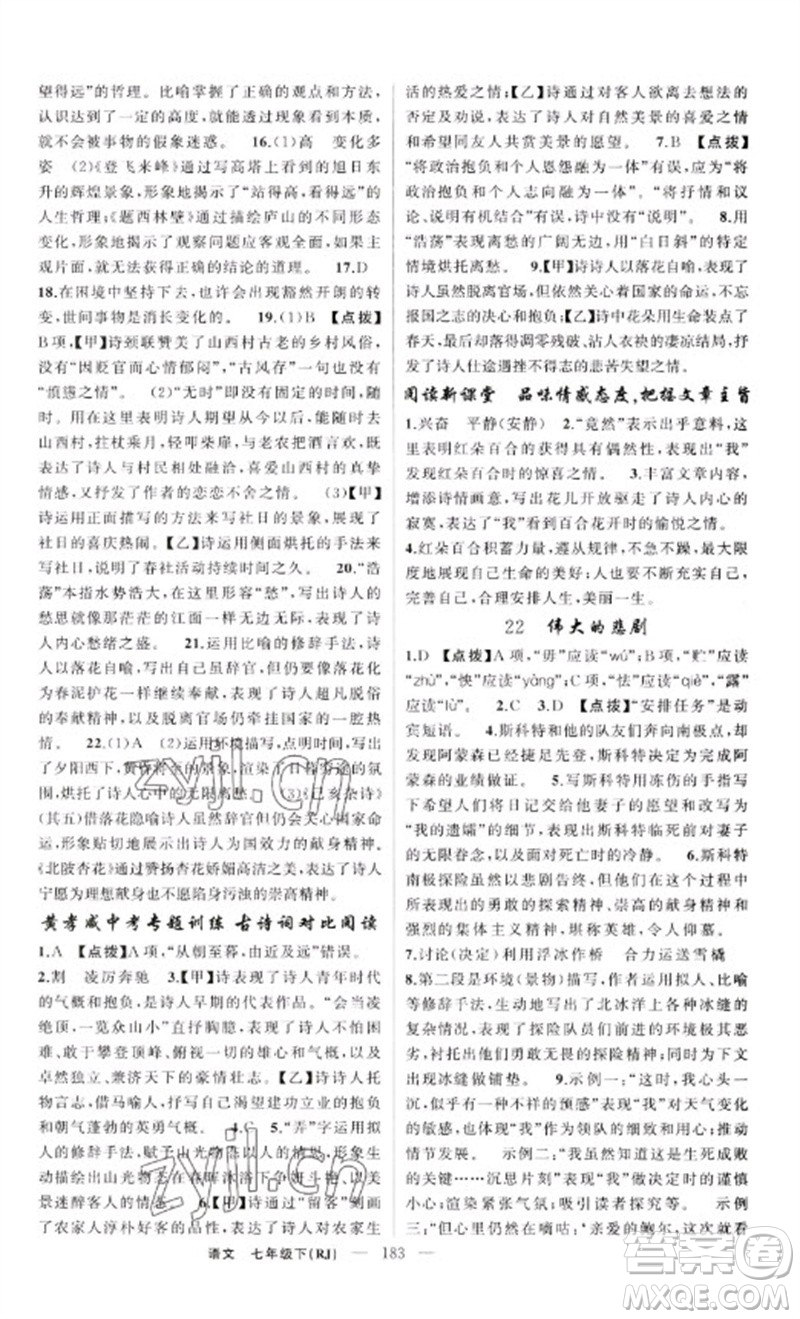 望得远”的哲理。比喻掌握了正确的观点和方法,
认识达到了一定的高度,就能透过现象看到本质,
就不会被事物的假象迷惑。 16.(1)高 变化多
姿 (2)《登飞来峰》通过写高塔上看到的旭日东
升的辉煌景象,形象地说明了“站得高,看得远”的
人生哲理;《题西林壁》通过描绘庐山的不同形态
变化,形象地揭示了观察问题应客观全面,如果主
观片面,就无法获得正确的结论的道理。 17.D
18.在困境中坚持下去,也许会豁然开朗的转
变,世间事物是消长变化的。 19.(1)B 【点拨】
B项,【甲】诗颈联赞美了山西村古老的乡村风俗,
没有“因贬官而心情郁闷”,“古风存”一句也没有
“愤懑之情”。 (2)“无时”即没有固定的时间,
用在这里表明诗人期望从今以后,能随时去游览
山西村,拄杖乘月,轻叩柴扉,与农家把酒言欢,
表达了诗人与村民相处融洽,喜爱山西村的真挚
情感,又抒发了作者的恋恋不舍之情。 (3)【甲】
诗运用正面描写的方法来写社日的景象,展现了
社日的喜庆热闹。【乙】诗运用侧面烘托的手法来
写社日宴会活动持续时间之久。 20.“浩
荡”本指水势浩大,在这里形容“愁”,写出了诗人的
愁思就像那茫茫的江面一样无边无际,表现了诗
人内心愁绪之盛。 21.运用比喻的修辞手法,
诗人以落花自喻,表明自己虽然辞官,但仍会像化
为春泥护花一样继续奉献,表达了诗人超凡脱俗
的奉献精神,以及脱离官场仍牵挂国家的一腔热
情。 22.(1)A (2)运用环境描写,点明时间,写出
了夕阳西下,黄昏将尽的景象,渲染了日暮悲凉的氛
围,烘托了诗人心中的无限离愁。 (3)《己亥杂诗》
(其五)借落花隐喻诗人虽然辞官但仍关心国家命
运,形象贴切地表达了诗人为国效力的献身精神。
《北陂杏花》通过赞扬杏花娇媚高洁之美,表现了诗人
宁愿为理想献身也不愿陷入污浊的崇高精神。
黄孝咸中考专题训练 古诗词对比阅读
1.A 【点拨】A项,“从朝至暮,由近及远”错误。
2.割 凌厉奔驰 3.【甲】诗表现了诗人青年时代
的气概和抱负,是诗人早期的代表作品,“会当凌
绝顶,一览众山小”直抒胸臆,表现了诗人不怕困
难、敢于攀登顶峰、俯视一切的雄心和气概,以及
卓然独立、兼济天下的豪情壮志。【乙】诗诗人托
物言志,借马喻人,抒写自己渴望建功立业的抱负
和昂扬奋发的英勇气概。 4.C 5.“弄”字运用拟
人的修辞手法,赋予山光物态以人的情感,生动形
象地描绘出山光物态在春晖沐浴下争奇斗艳、以美
景迷醉客人的情态 6.【甲】诗通过“留客”刻画
了农家人淳朴好客的品性,也表达了诗人对农家生
活的热爱之情;【乙】诗通过对客人欲离去想法的
否定及劝说,表达了诗人对自然美景的喜爱之情
和希望同友人共赏美景的愿望。 7.B 【点拨】
“将政治抱负和个人恩怨融为一体”有误,应为
“将政治抱负和个人志向融为一体”。“将抒情和议
论、说明有机结合”有误,诗中没有“说明”。 8.用
“浩荡”表现离愁的广阔无边,用“白日斜”的特定
情境烘托离愁。 9.【甲】诗诗人以落花自比,表明
自己虽脱离官场,但仍关心着国家的命运,不忘
报国之志的决心和抱负;【乙】诗中花朵用生命装点了
春天,然而却落得凋零残破、沾人衣袂的凄凉结局,抒
发了诗人仕途遇挫不得志的悲苦失望之情。
阅读新课堂 品味情感态度,把握文章主旨
1.兴奋 平静(安静) 2.“竟然”表示出乎意料,
这里表明红朵百合的获得具有偶然性,突出“我”
发现红朵百合时的惊喜之情。 3.丰富文章内容,
增添诗情画意,写出花儿开放驱走了诗人内心的
寂寞,表达了“我”看到百合花开时的愉悦之情。
4.红朵百合积蓄力量,遵从规律,不急不躁,最大限
度地展现自己生命的美好;人也要适应环境,提升、
完善自己,合理安排人生,美丽一生。
22 伟大的悲剧
1.D 【点拨】A项,“毋”应读“wú”;B项,“贮”应读
“zhù”,“怏”应读“yàng”;C项,“怯”应读“qiè”,“露”
应读“lù”。 2.C 3.D 【点拨】“安排任务”是动
宾短语。 4.斯科特和他的队友们奔向南极点,却
发现阿蒙森已经捷足先登,斯科特决定为完成了阿
蒙森的业绩做证。 5.写斯科特用冻伤的手指写
下希望人们将日记交给他妻子的愿望和改写为
“我的遗孀”的细节,表现了斯科特临死前对妻子
的无限眷念,以及面对死亡时的冷静。 6.斯科特
南极探险虽然以悲剧告终,但在南极探险过程中,
他们表现出的勇于探索的精神、崇高的献身精神和
强烈的集体主义精神,堪称英雄,令人仰慕。
7.讨论(决定)利用浮冰作桥 合力运送雪橇
8.第二段是环境(景物)描写,运用拟人、比喻
等修辞手法,生动地写出了北冰洋上各种冰缝的
复杂情况,表现了探险队员们前进的艰难,突出了
他们勇敢无畏的探险精神;同时为下文
出现冰缝做铺垫。 9.示例一:“我心里一
沉,似有一种不祥的预感”表现“我”对天气变化
的敏感,体现了作为领队的细致和用心;推动
情节发展。 示例二:“我知道这是生死成败
的关键……沉思片刻”表现“我”做决定时的谨慎
小心;渲染紧张气氛;引起读者关注。 示例
三:“‘我心里在嘀咕:‘亲爱的鲍尔,这次就看
语文 七年级下(RJ) — 183 —
zyjl.cn
zyjl.cn
答案圈
MXQE.COM